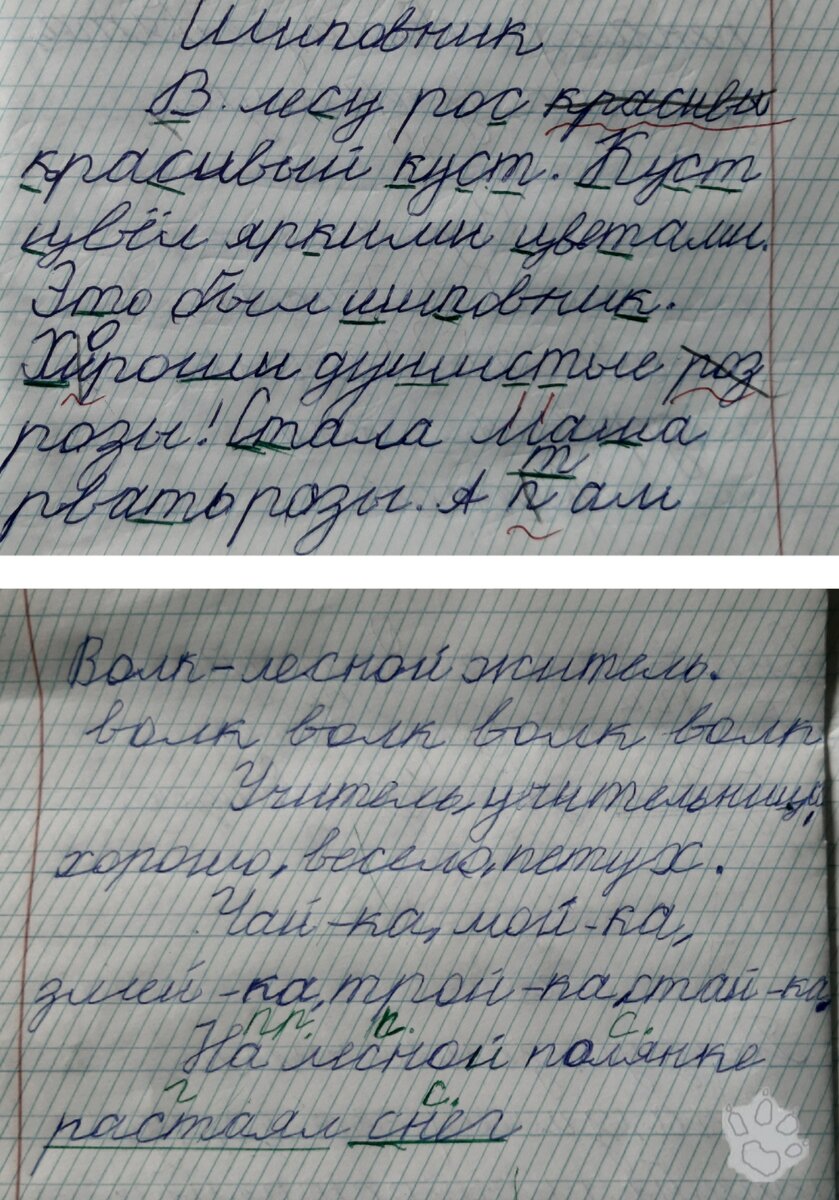 Шиповник
В лесу рос красивы
красивый куст. Куст
цвёл яркими цветами.
Это был шиповник.
Хороши душистые роз
розы! Стала Маша
рвать розы. А там
Волк-лесной житель.
волк волк волк волк
Учитель, учительница,
хорошо, весело, петух.
Чай-ка, мой-ка,
змей-ка, трой-ка, стай-ка.
пр. п. с.
На лесной полянке
г с.
растаял снег